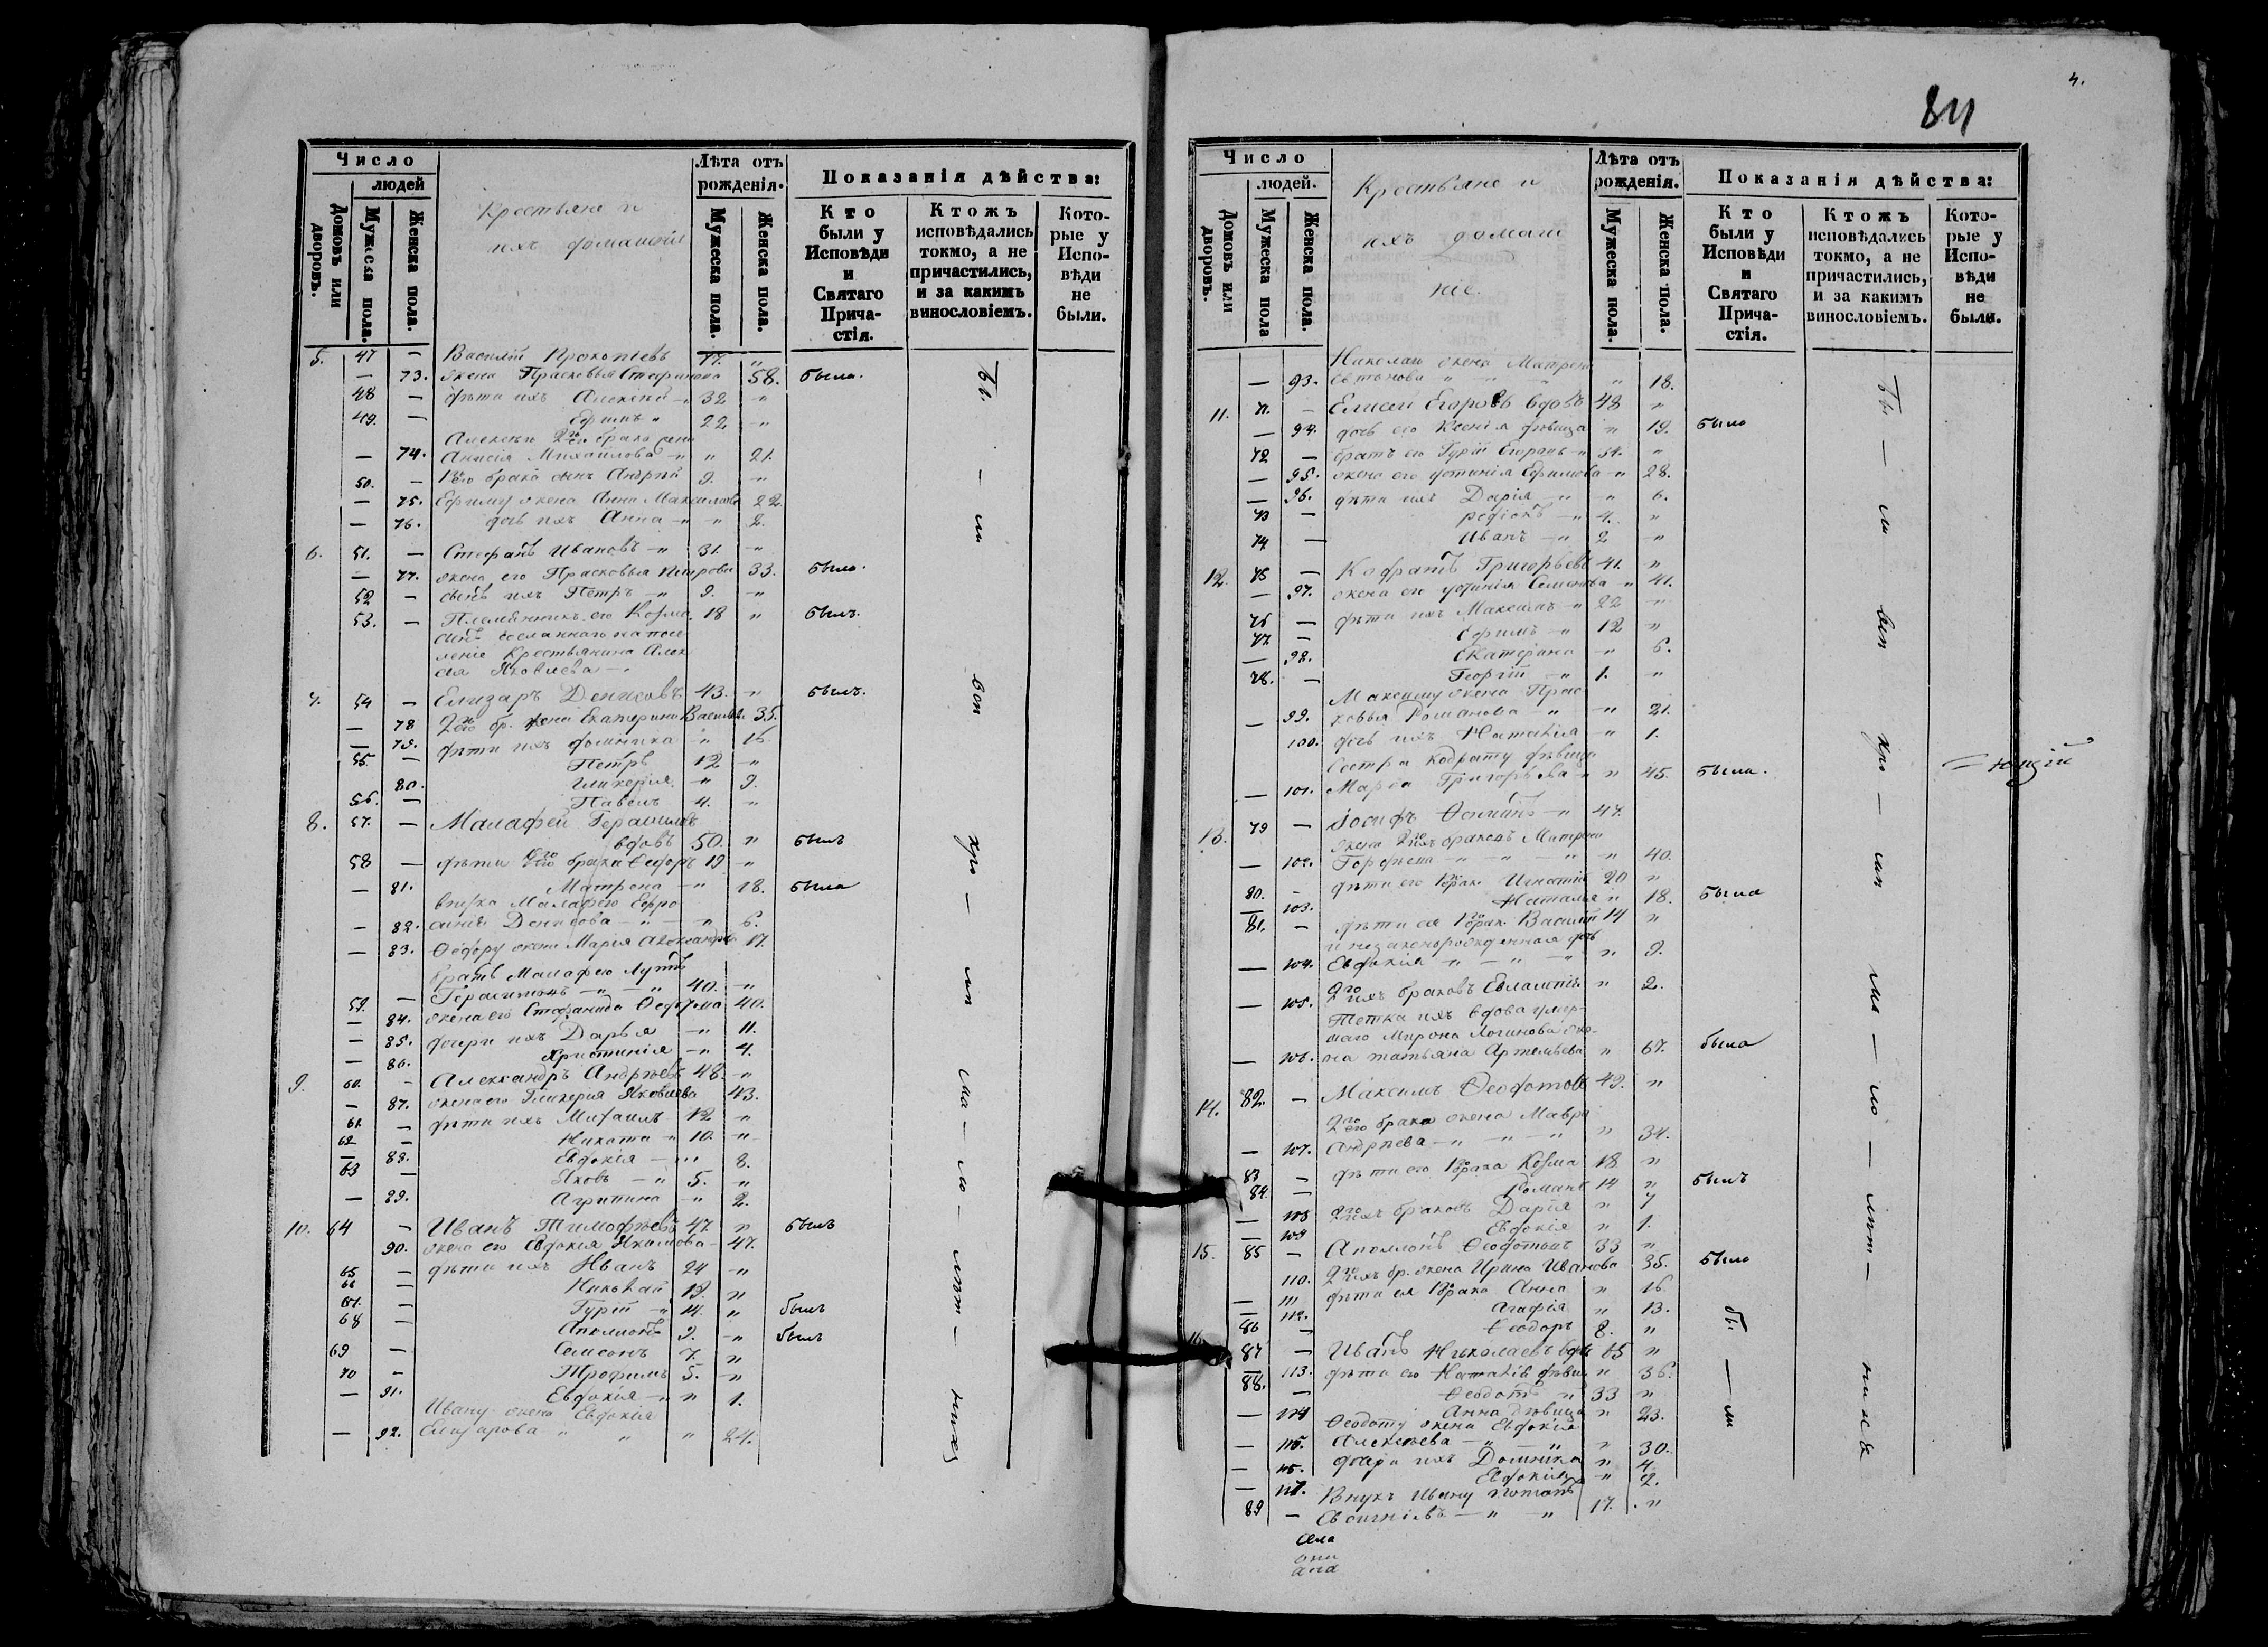 Число
людей
Домовъ или дворовъ.
Мужеска пола.
Женска пола.
Крестьяне и
ихъ домашніе
Лѣта отъ рожденія.
Мужеска пола.
Женска пола.
Показанія дѣйства:
Кто были у Исповѣди и Святаго Прича-стія.
Ктожъ исповѣдались токмо, а не причастились, и за какимъ винословіемъ.
Кото-рые у Испо-вѣди не были.
5. 47 — Василій Прокопіевъ 77. "
— 73. жена Прасковья Стефанова 58. была.
48 — дѣти ихъ Алексѣй " 32 "
49. — Ефимъ " 22 "
Алексѣю 2го брака жена
— 74. Анисія Михайлова " " 21.
50. — 1го брака сынъ Андрей 9. "
— 75. Ефиму жена Анна Максимова 22
— 76. дочь ихъ Анна " " 2.
6. 51. — Стефанъ Ивановъ " 31. "
— 77. жена его Прасковья Петрова 33. была.
52 — сынъ ихъ Петръ " 9. "
53. — Племянникъ его Козма 18 " былъ.
сынъ сосланнаго на посе
леніе крестьянина Алек
сея Яковлева
7. 54 — Елизаръ Денисовъ 43. " былъ.
— 78 2го бр. жена Екатерина Васильева 35.
— 79. дѣти ихъ Домника " 16.
55. — Петръ 12 "
80. Гликерія " 9.
56. — Павелъ 4. "
8. 57. — Малафей Герасимовъ
вдовъ 50. " былъ
58 — дѣти 2го брака Ѳедоръ 19 "
— 81. Матрона " 18. была
внука Малафею Евфро
— 82. синія Денисова " 6.
— 83. Ѳедору жена Марія Александрова 17.
братъ Малафею
59. — Герасимовъ 40. "
— 84. жена его Стефанида Ѳедорова 40.
— 85. дочери ихъ Дарья " 11.
— 86. Христинія " 4.
9. 60. — Александръ Андрѣевъ 48. "
— 87. жена его Гликерія Яковлева 43.
61. — дѣти ихъ Михаилъ 12 "
62 — Никита " 10. "
— 88. Евдокія " 8.
63 — Яковъ " 5. "
— 89. Агрипина " 2.
10. 64 — Иванъ Тимофѣевъ 47. " былъ
90. жена его Евдокія Якимова 47.
65 — дѣти ихъ Иванъ 24 "
66 — Николай 19. "
67. — Гурій " 14. " былъ
68 — Аполлонъ 9. " былъ
69 — Самсонъ 7. "
70 — Трофимъ 5. "
— 91. Евдокія " " 1.
Ивану жена Евдокія
— 92. Елизарова " " " 24.
84
4.
Число
людей.
Домовъ или дворовъ.
Мужеска пола
Женска пола.
Крестьяне и
ихъ домаш
ніе.
Лѣта отъ рожденія.
Мужеска пола.
Женска пола.
Показанія дѣйства:
Кто были у Исповѣди и Святаго Прича-стія.
Ктожъ исповѣдались токмо, а не причастились, и за какимъ винословіемъ.
Кото-рые у Испо-вѣди не были.
Николаю жена Матрена
— 93. " 18.
11. 71. — Елисей Егоровъ вдовъ 48 "
— 94. дочь его Ксенія дѣвица " 19. была
72 — братъ его Гурій Егоровъ "
— 95. жена его Устинія Ефимова " 28.
— 96. дѣти ихъ Дарія " 6.
73 — Родіонъ " 4. "
74 — Иванъ " 2 "
12. 75 — Кодратъ Григорьевъ 41. "
— 97. жена его Устинія Семенова " 41.
76 — дѣти ихъ Максимъ " 22 "
77 — Ефимъ " 12 "
— 98. Екатерина " 6.
78. — Георгій " 1. "
Максиму жена Прас
— 99. ковья Романова " " 21.
100. дочь ихъ Наталія " 1.
Сестра Кодрату дѣвица
— 101. Марѳа Григорьева " " 45. была.
13. 79 — Іосифъ 47.
жена 2го ихъ браковъ Матрена
— 102. " " 40.
80. — дѣти его 1го брак. Игнатій 20 "
— 103. Наталья " 18. была
81. — дѣти ея 1го брак. Василій 14 "
и незаконорожденная дочь
— 104. Евдокія " " 9.
— 105. 2го ихъ браковъ Евлампія " 2.
Тетка ихъ вдова умер-
шаго Мирона Логинова же-
— 106. на Татьяна Артемьева " 67. была
14. 82. — Максимъ Ѳеодотовъ 49. "
2го его брака жена Мавра
— 107. Андрѣева " " 34.
83 — дѣти его 1го брака Козма 18 "
84. — Романъ 14 " былъ
— 108 2го ихъ браковъ Дарія " 7
— 109 Евдокія " 1.
15. 85 — Аполлонъ Ѳеодотовъ 33 "
110. 2го ихъ бр. жена Ирина Иванова 35. была
— 111 дѣти ея 1го брака Анна " 16
— 112. Агафія " 13.
86 — Ѳеодоръ 8. "
16. 87 — Иванъ Николаевъ вдовъ 65 "
— 113. дѣти его Наталія дѣвица " 36.
88. — Ѳеодотъ " 33 "
— 114 Анна дѣвица " 23.
Ѳеодоту жена Евдокія
— 115. Алексѣева " " 30.
— 116. дочери ихъ Домника " 4
— 117. Евдокія " 2.
89 — Внукъ Ивану Потапъ
Евсигніевъ " " 17. "